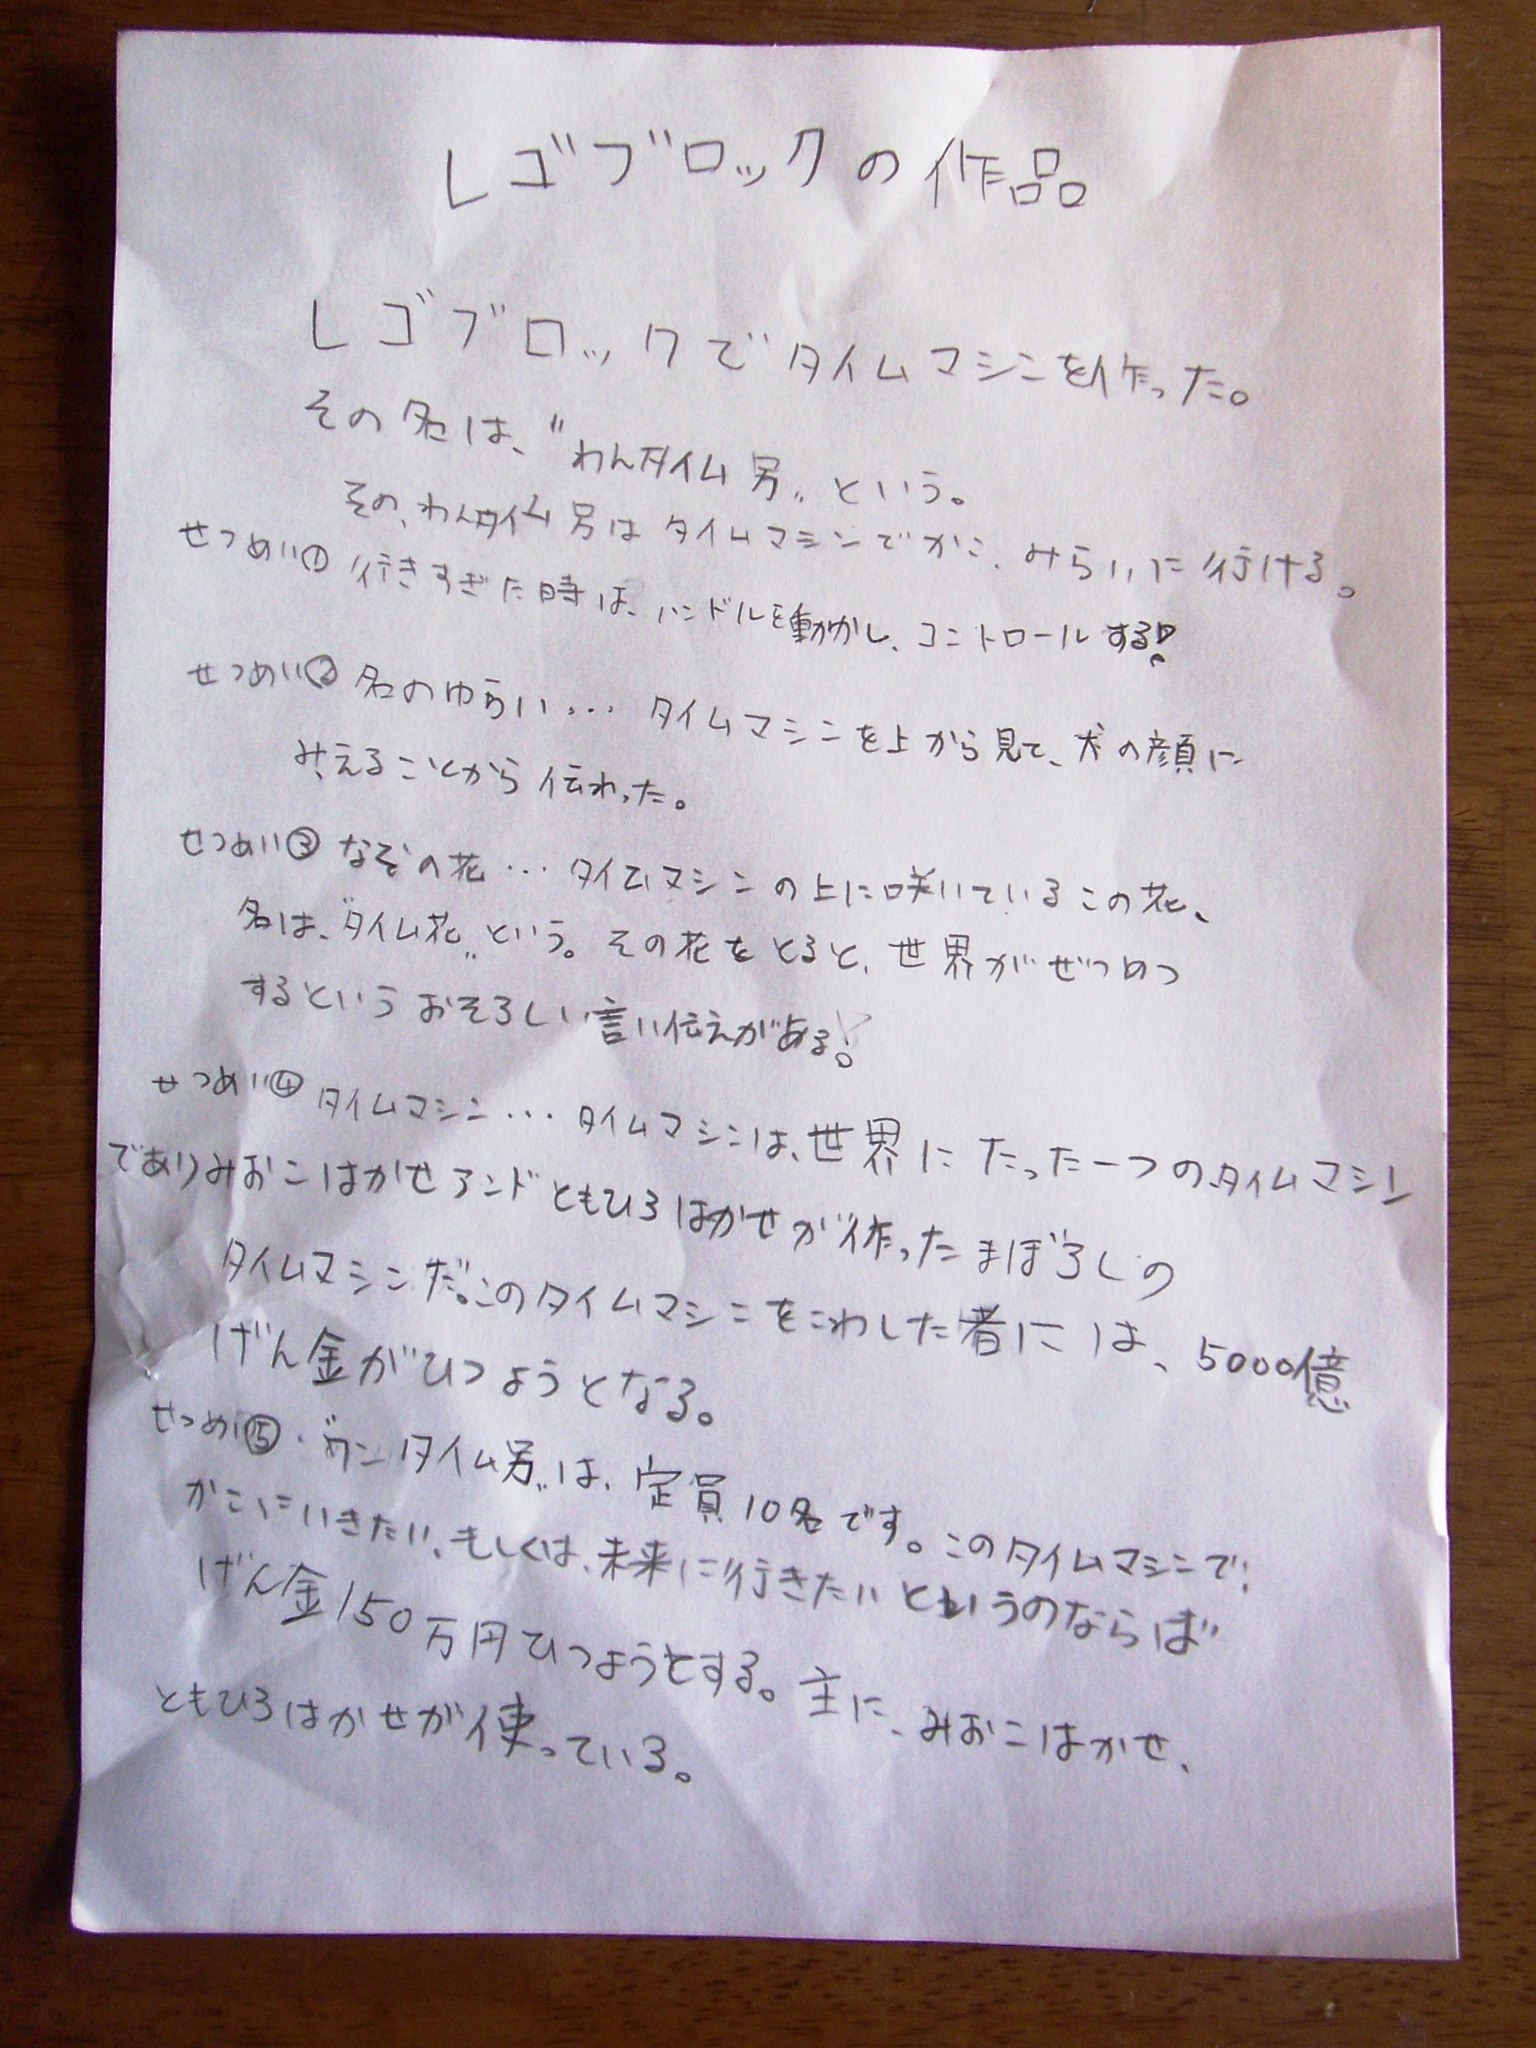 レゴブロックの作品
レゴブロックでタイムマシンを作った。
その名は、〝わんタイム号〟という。
その、わんタイム号はタイムマシンでかこ、みらいに行ける。
せつめい① 行きすぎた時は、ハンドルを動かし、コントロールする!
せつめい② 名のゆらい… タイムマシンを上から見て、犬の顔に
みえることから伝わった。
せつめい③ なぞの花… タイムマシンの上に咲いているこの花、
名は、〝タイム花〟という。その花をとると、世界がぜつめつ
するというおそろしい言い伝えがある!
せつめい④ タイムマシン… タイムマシンは、世界にたった一つのタイムマシン
でありみおこはかせアンドともひろはかせが作ったまぼろしの
タイムマシンだ。このタイムマシンをこわした者には、5000億
げん金がひつようとなる。
せつめい⑤ 〝ワンタイム号〟は、定員10名です。このタイムマシンで!
かこにいきたい、もしくは、未来に行きたいというのならば
げん金150万円ひつようとする。主に、みおこはかせ、
ともひろはかせが使っている。